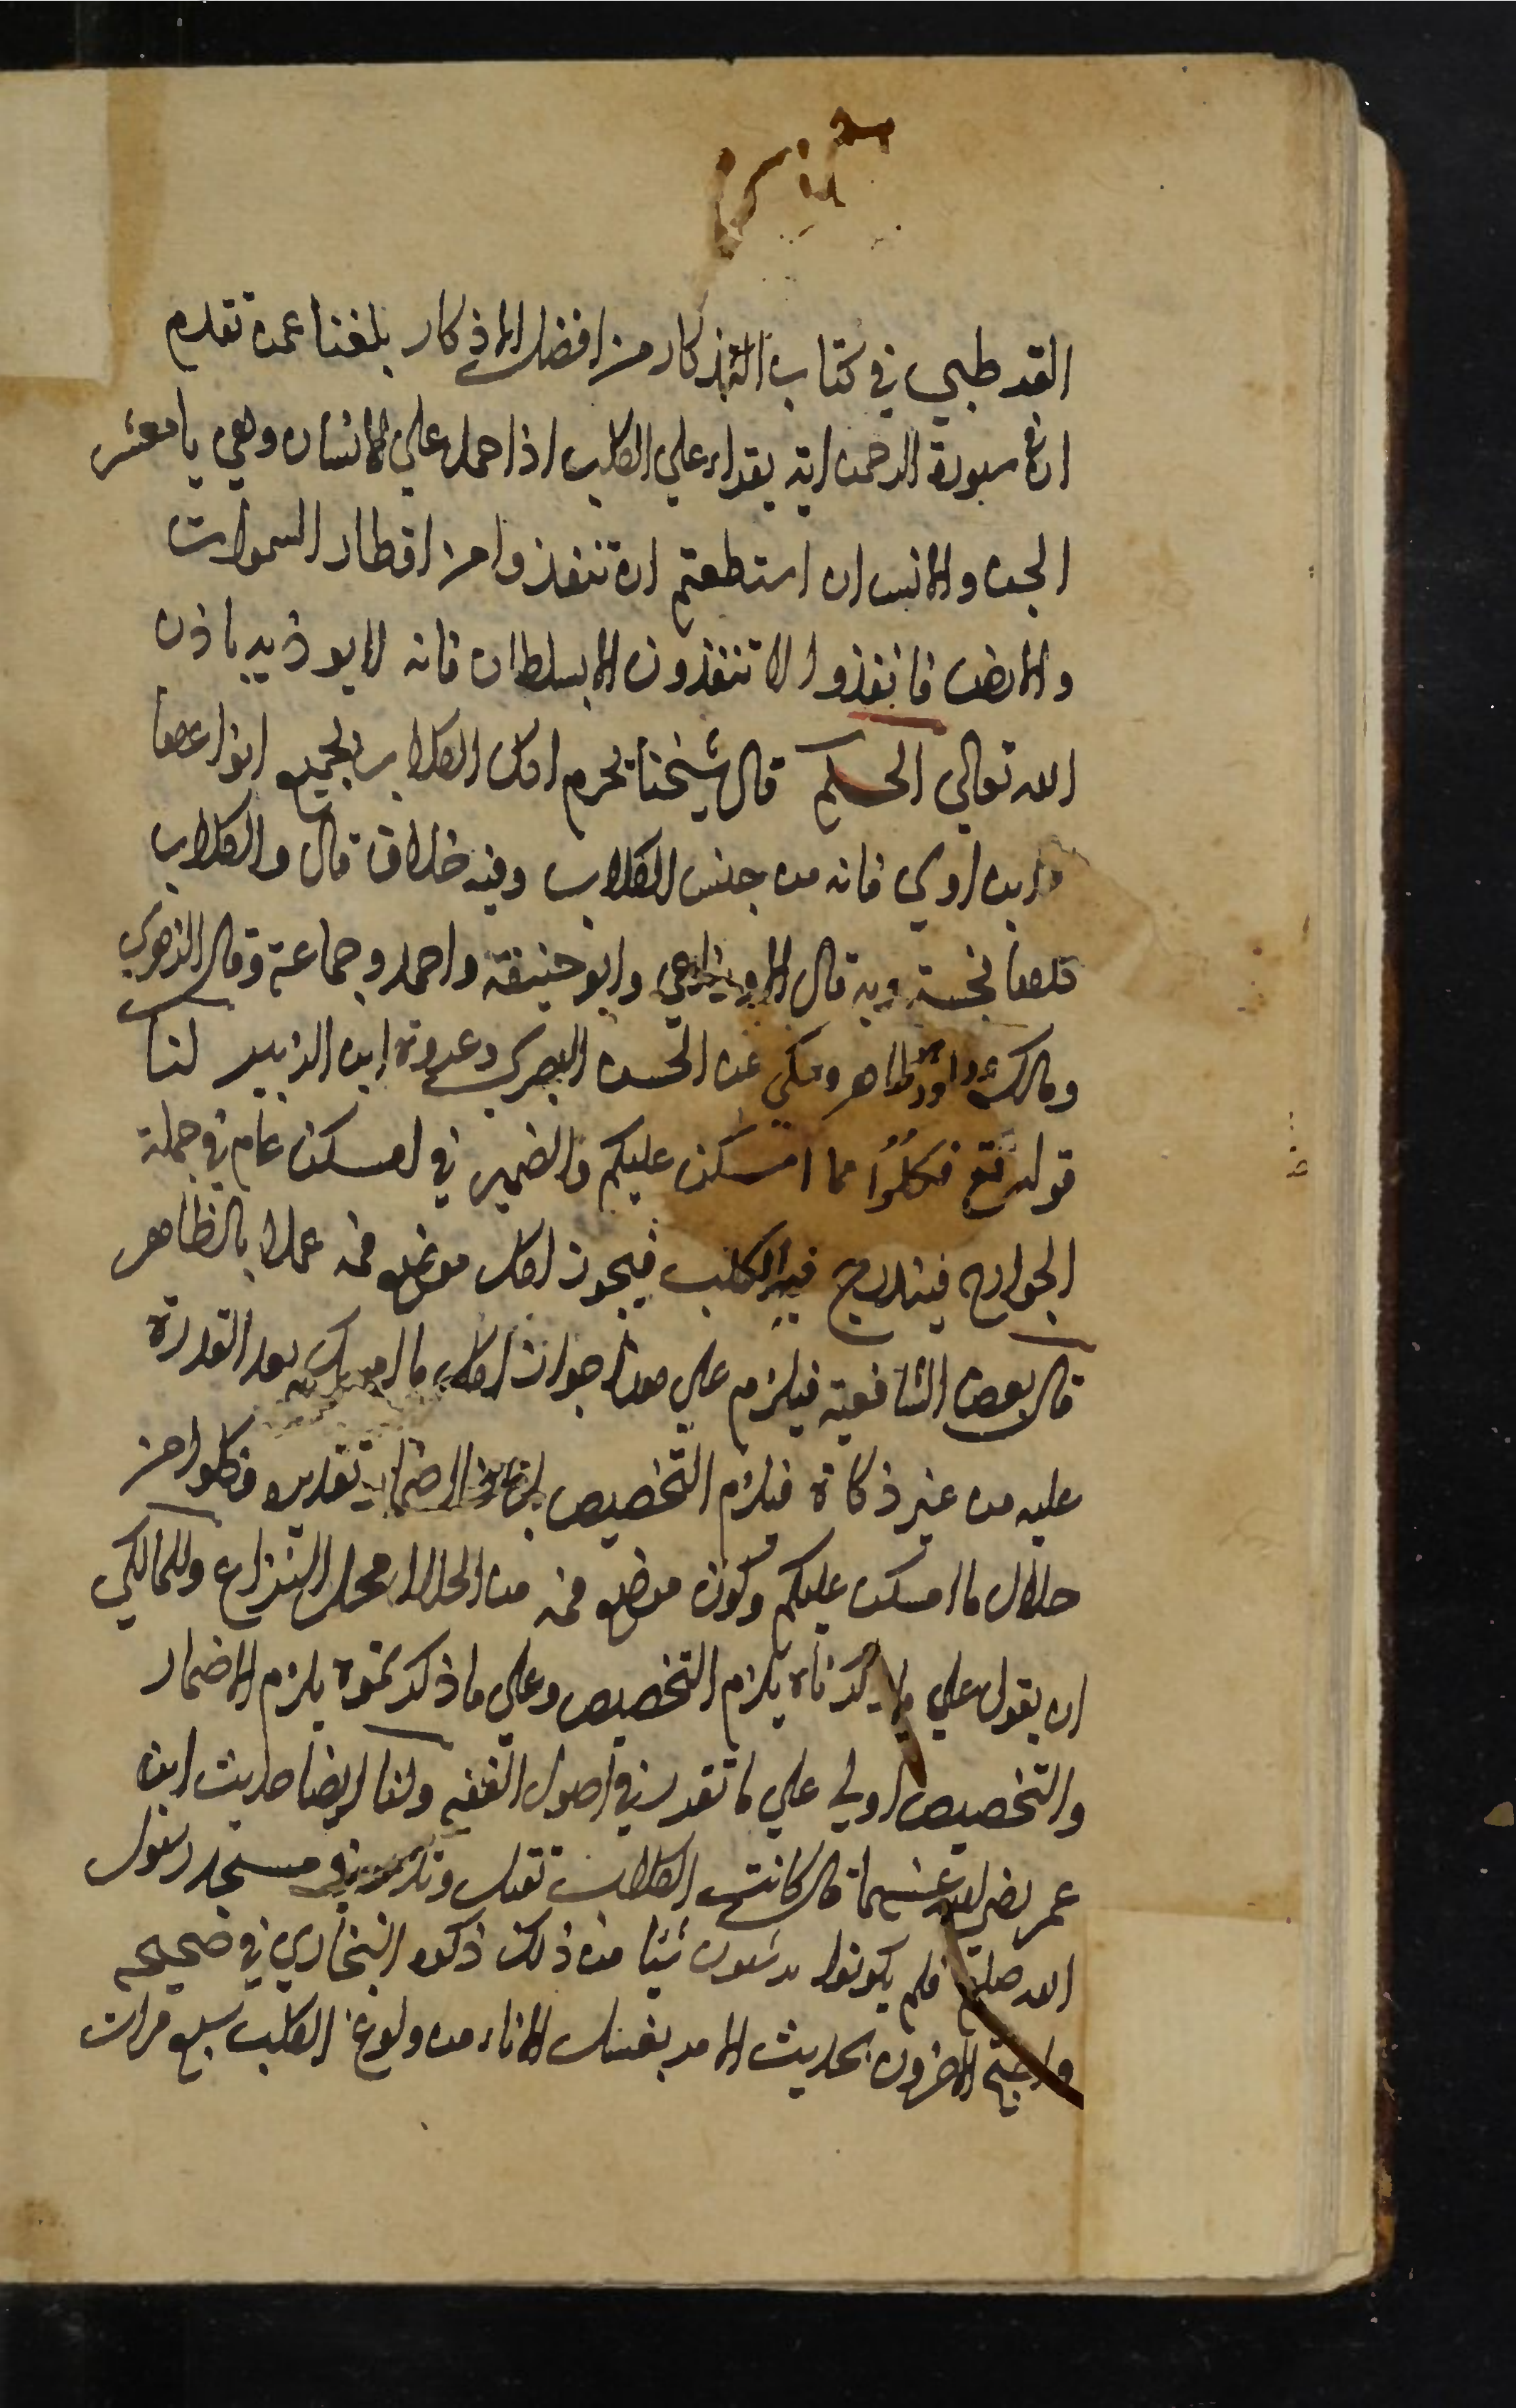 القرطبي في كتاب التذكار من افضل الاذكار بلغنا عمن تقدم
ان في سورة الرحمن اية يقراء علي الكلب اذا حمل علي الانسان وهي يا معشر
الجن والانس ان استطعتم ان تنفذوا من اقطار السموات
والارض فانفذوا لا تنفذون الا بسلطان فانه لا يوذيه باذن
الله تعالي الحكم قال شيخنا يحرم اكل الكلاب بجميع انواعها
وابن اوي فانه من جنس الكلاب وفيه خلاف قال والكلاب
كلها نجسة وبه قال الاوزاعي وابو حنيفة واحمد وجماعة وقال الزهري
ومالك وداود طاهر وحكي عن الحسن البصري وعروة ابن الزبير لنا
قوله تع فكلوا مما امسكن عليكم والضمير في امسكن عام في جملة
الجوارح فيندرج فيه الكلب فيجوز اكل موضع فمه عملا بالظاهر
قال بعض الشافعية فيلزم علي هذا جواز اكل ما امسك بعد القدرة
عليه من غير ذكاة فيلزم التخصيص الاضمار تقديره فكلوا من
حلال ما امسكن عليكم وكون موضع فمه من الحلال محل النزاع وللمالكي
ان يقول علي ما ذكرناه يلزم التخصيص وعلي ما ذكرتموه يلزم الاضمار
والتخصيص اولي علي ما تقدر في اصول الفقه ولنا ايضا حديث ابن
عمر رضي الله عنهما قال كانت الكلاب تقبل وتدبر في مسجد رسول
الله صلعم فلم يكونوا يرشون شيا من ذلك ذكره البخاري في صحيحه
واحتج الاخرون بحديث الامر بغسل الاناء من ولوغ الكلب سبع مرات